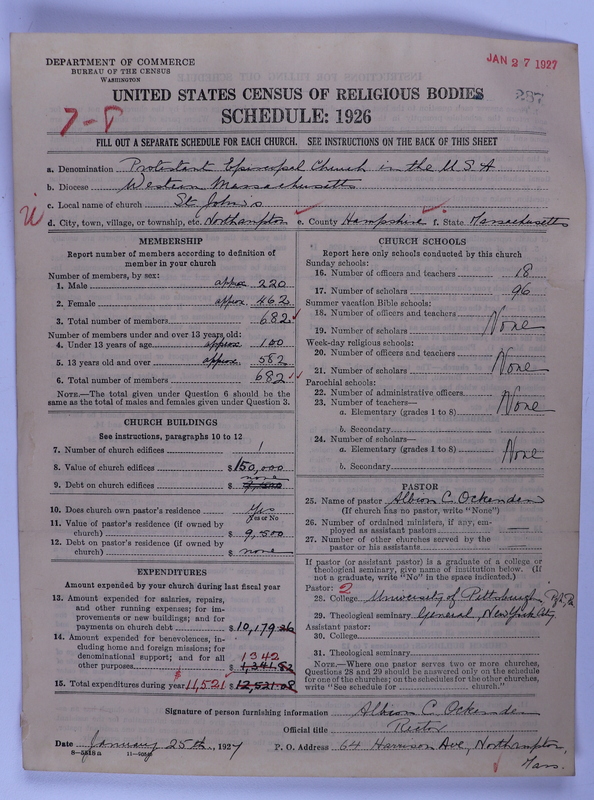 DEPARTMENT OF COMMERCE
BUREAU OF THE CENSUS
WASHINGTON
JAN 27 1927
UNITED STATES CENSUS OF RELIGIOUS BODIES
287
SCHEDULE: 1926
7-8
FILL OUT A SEPARATE SCHEDULE FOR EACH CHURCH. SEE INSTRUCTIONS ON THE BACK OF THIS SHEET
a. Denomination Protestant Episcopal Church in the U S A
b. Diocese Western Massachusetts
c. Local name of church St. John's
d. City, town, village, or township, etc. Northampton e. County Hampshire f. State Massachusetts
MEMBERSHIP
Report number of members according to definition of
member in your church
Number of members, by sex:
1. Male approx 220
2. Female approx. 462
3. Total number of members 682
Number of members under and over 13 years old:
4. Under 13 years of age approx 100
5. 13 years old and over approx 582
6. Total number of members 682
NOTE.—The total given under Question 6 should be the
same as the total of males and females given under Question 3.
CHURCH BUILDINGS
See instructions, paragraphs 10 to 12
7. Number of church edifices 1
8. Value of church edifices $150,000
none
9. Debt on church edifices $
10. Does church own pastor's residence Yes
Yes or No
11. Value of pastor's residence (if owned by
church) $ 9,500
12. Debt on pastor's residence (if owned by
church) $ none
EXPENDITURES
Amount expended by your church during last fiscal year
13. Amount expended for salaries, repairs,
and other running expenses; for im-
provements or new buildings; and for
payments on church debt $10,179.26
14. Amount expended for benevolences, in-
cluding home and foreign missions; for
denominational support; and for all 1342
other purposes $ 1,341.82
15. Total expenditures during year 11,521 $ 12,521.08
CHURCH SCHOOLS
Report here only schools conducted by this church
Sunday schools:
16. Number of officers and teachers 18
17. Number of scholars 96
Summer vacation Bible schools:
18. Number of officers and teachers
19. Number of scholars None
Week-day religious schools:
20. Number of officers and teachers
21. Number of scholars None
Parochial schools:
22. Number of administrative officers
23. Number of teachers— None
a. Elementary (grades 1 to 8)
b. Secondary
24. Number of scholars—
a. Elementary (grades 1 to 8) None
b. Secondary
PASTOR
25. Name of pastor Albion C. Ockenden
(If church has no pastor, write "None")
26. Number of ordained ministers, if any, em-
ployed as assistant pastors —
27. Number of other churches served by the
pastor or his assistants —
If pastor (or assistant pastor) is a graduate of a college or
theological seminary, give name of institution below. (If
not a graduate, write "No" in the space indicated.)
Pastor: 2
28. College University of Pittsburgh, Pgh, Pa
29. Theological seminary General, New York City
Assistant pastor:
30. College
31. Theological seminary
NOTE.—Where one pastor serves two or more churches,
Questions 28 and 29 should be answered only on the schedule
for one of the churches; on the schedules for the other churches,
write "See schedule for church."
Signature of person furnishing information Albion C. Ockenden
Official title Rector
Date January 25th, 1927 P. O. Address 64 Harrison Ave, Northampton,
Mass.